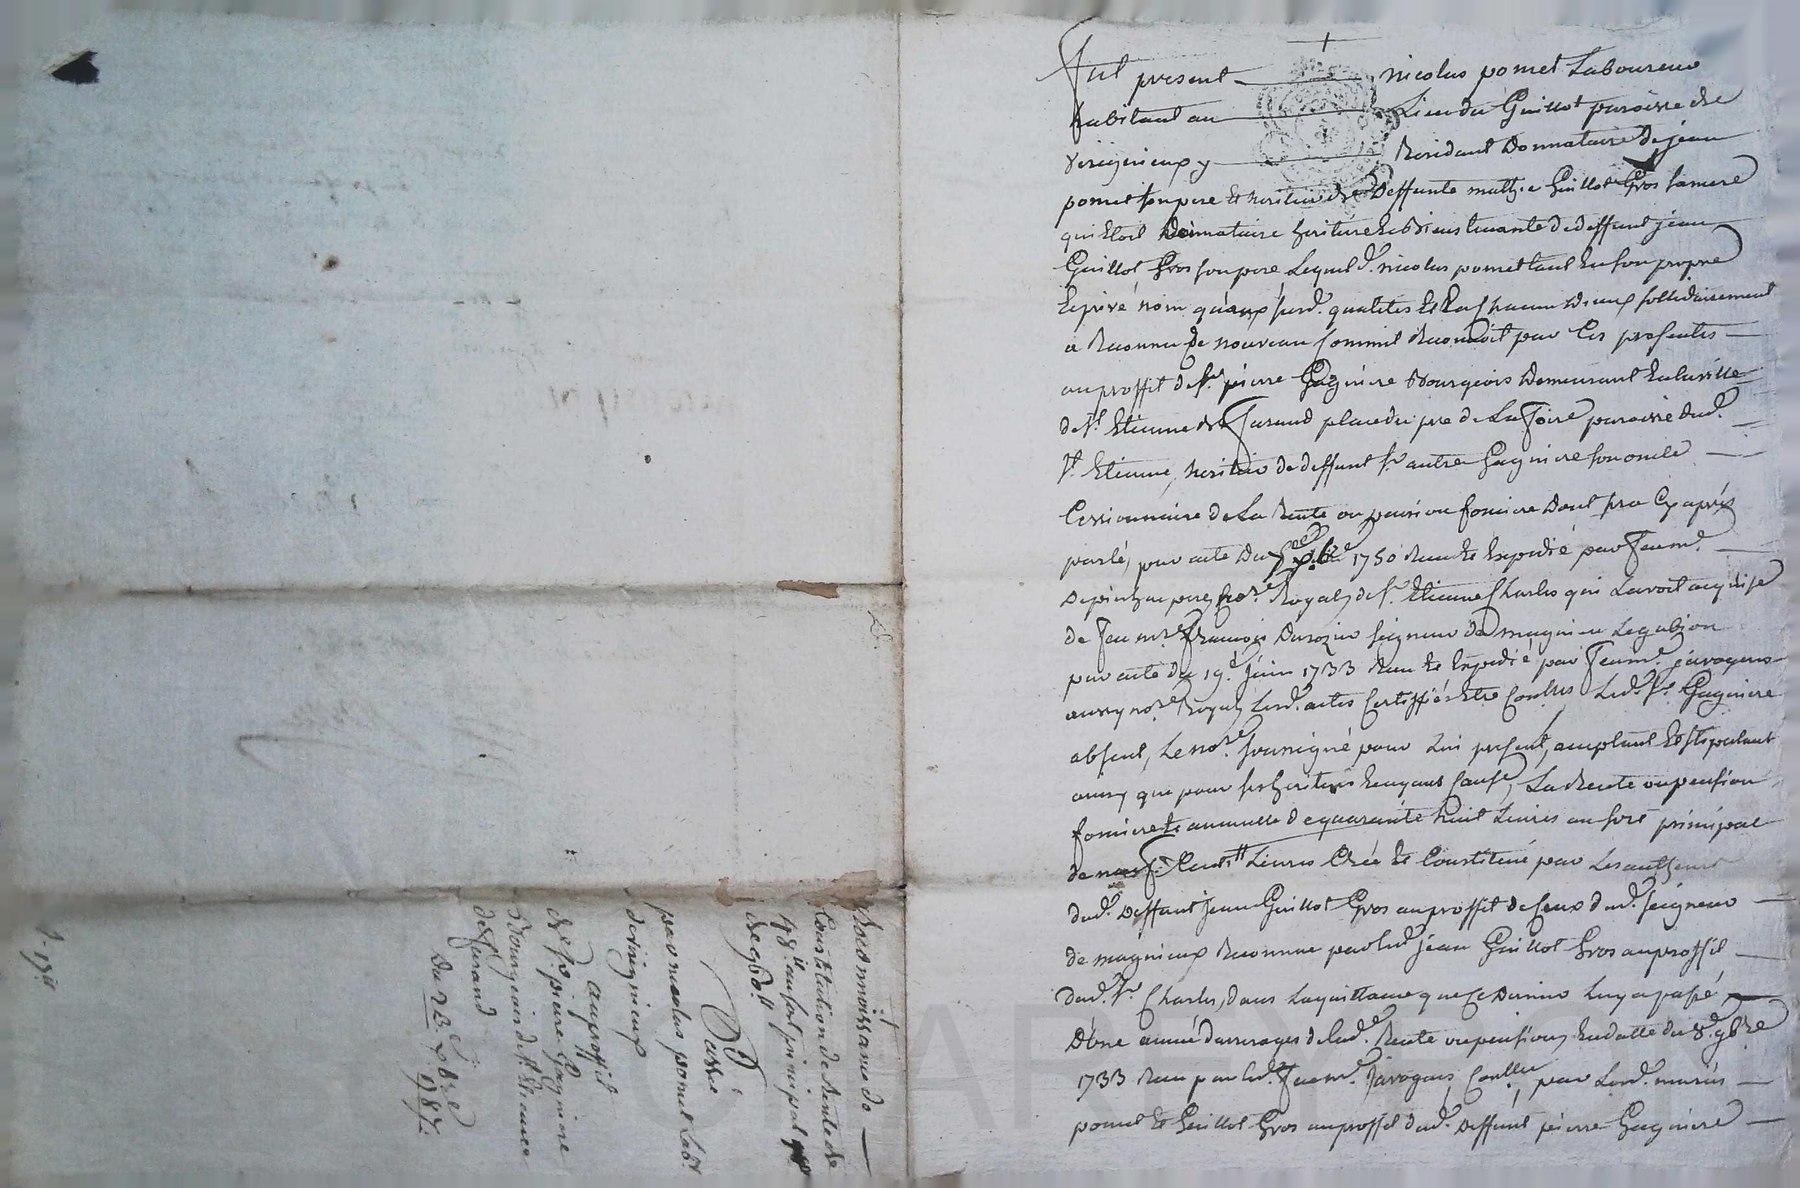 Fut present nicolas pomet Laboureur
habitant au Lieu du Guillot paroisse de
verignieux y Residant Donnataire de jean
pomet son pere et heritier de Deffunte mathie Guillot Gros sa mere
qui Etoit Donnataire heritiere de deffunt jean
Guillot Gros son pere Lequel d. nicolas pomet tant En son propre
Et privé nom qu'aux susd. qualites et L'un chacun d'eux sollidairement
a Reconnu de nouveau comme il Reconnoit par les presentes
au proffit de Sr. pierre Gagniere Bourgeois Demeurant En la ville
de St. Etienne de furand place du pre de La foire paroisse dud.
St. Etienne, heritier de deffunt Sr. autre Gagniere son oncle
Cessionnaire de La Rente ou pension fonciere dont sera Cy après
parlé, par acte Du 1750 Receu Et Expedié par feu me.
pere, nore. Royal, de Sr. Etienne Charles qui L'avoit acquise
de feu mre. françois Durozier seigneur de magnieu Le gabion
par acte du 19e. juin 1733 Receu Et Expedié par feu me. javogues
aussy nore. Royal, Lesd. actes Certiffiés Etre Conllés Led. Sr. Gagniere
absent, Le nore. soussigné pour Lui present, acceptant Et stipulant
ainsy que pour ses heritiers Et ayant cause, La Rente ou pension
fonciere Et annuelle de quarante huit Livres au sort principal
de neuf Cents Livres Créé Et Constitué par Les autheurs
dud. Deffunt jean Guillot Gros au proffit de Ceux dud. seigneur
de magnieux Reconnue par led. jean Guillot Gros au proffit
dud. Sr. Charles, dans La quittance que Ce Dernier Luy a passé
D'une année d'arrerages de lad. Rente ou pension, En datte du 8e. 9bre
1733 Receu par led. feu me. javogues, Conllée, par Lesd. mariés
pomet Et Guillot Gros au proffit dud. Deffunt pierre Gagniere
Reconnoissance de
Constitution de Rente de
48 ll. au sort principal
de 960 ll.
Passée
par nicolas pomet Labr.
de verignieux
au proffit
de Sr. pierre Gagniere
Bourgeois de St. Etienne
de furand
Du 23 1787.